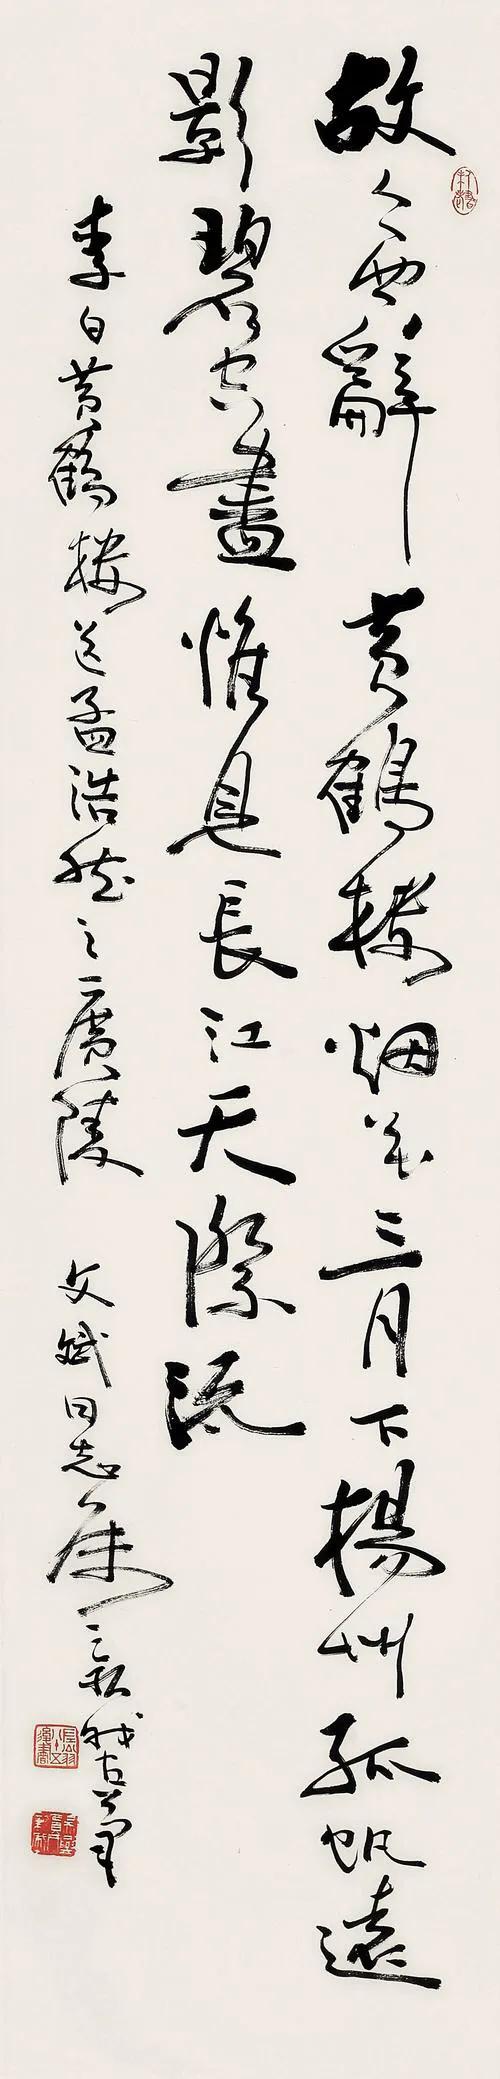 故人西辭黄鶴樓烟花三月下揚州孤帆遠
影碧空盡惟見長江天際流
李白黄鶴樓送孟浩然之廣陵 文斌同志屬